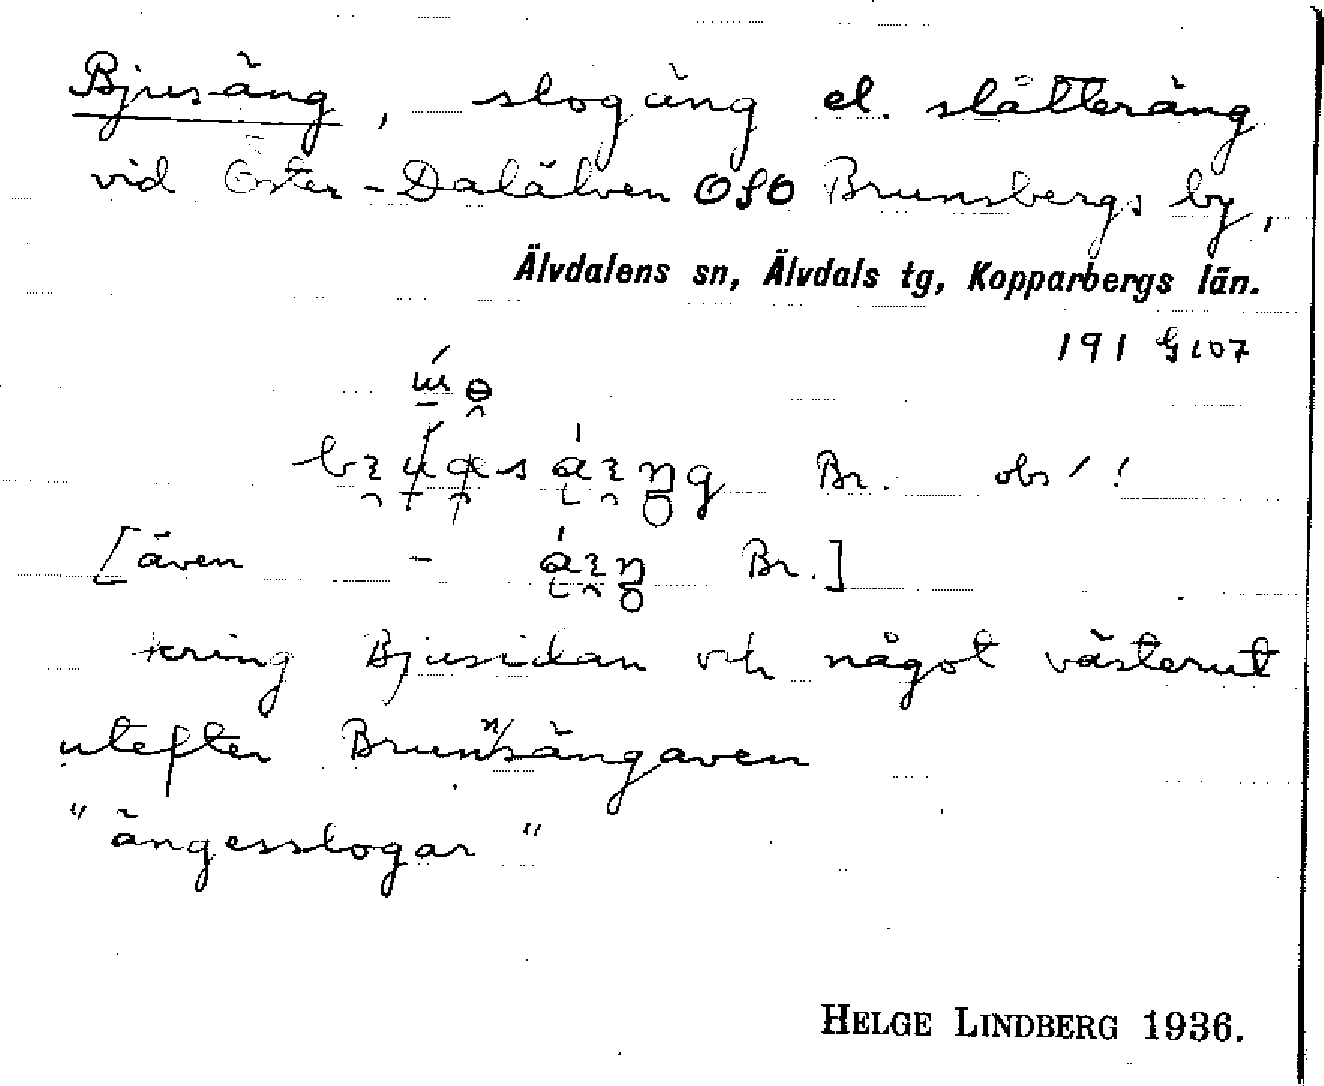 Bjusäng, slogäng el. slåtteräng
vid Öster-Dalälven OSO Brunsbergs by,
Älvdalens sn, Älvdals tg, Kopparbergs län.
191 G 107
Br. obs ! !
[även - Br.]
kring Bjusidan och något västerut
utefter Brunnsängaven
"ängesslogar"
HELGE LINDBERG 1936.